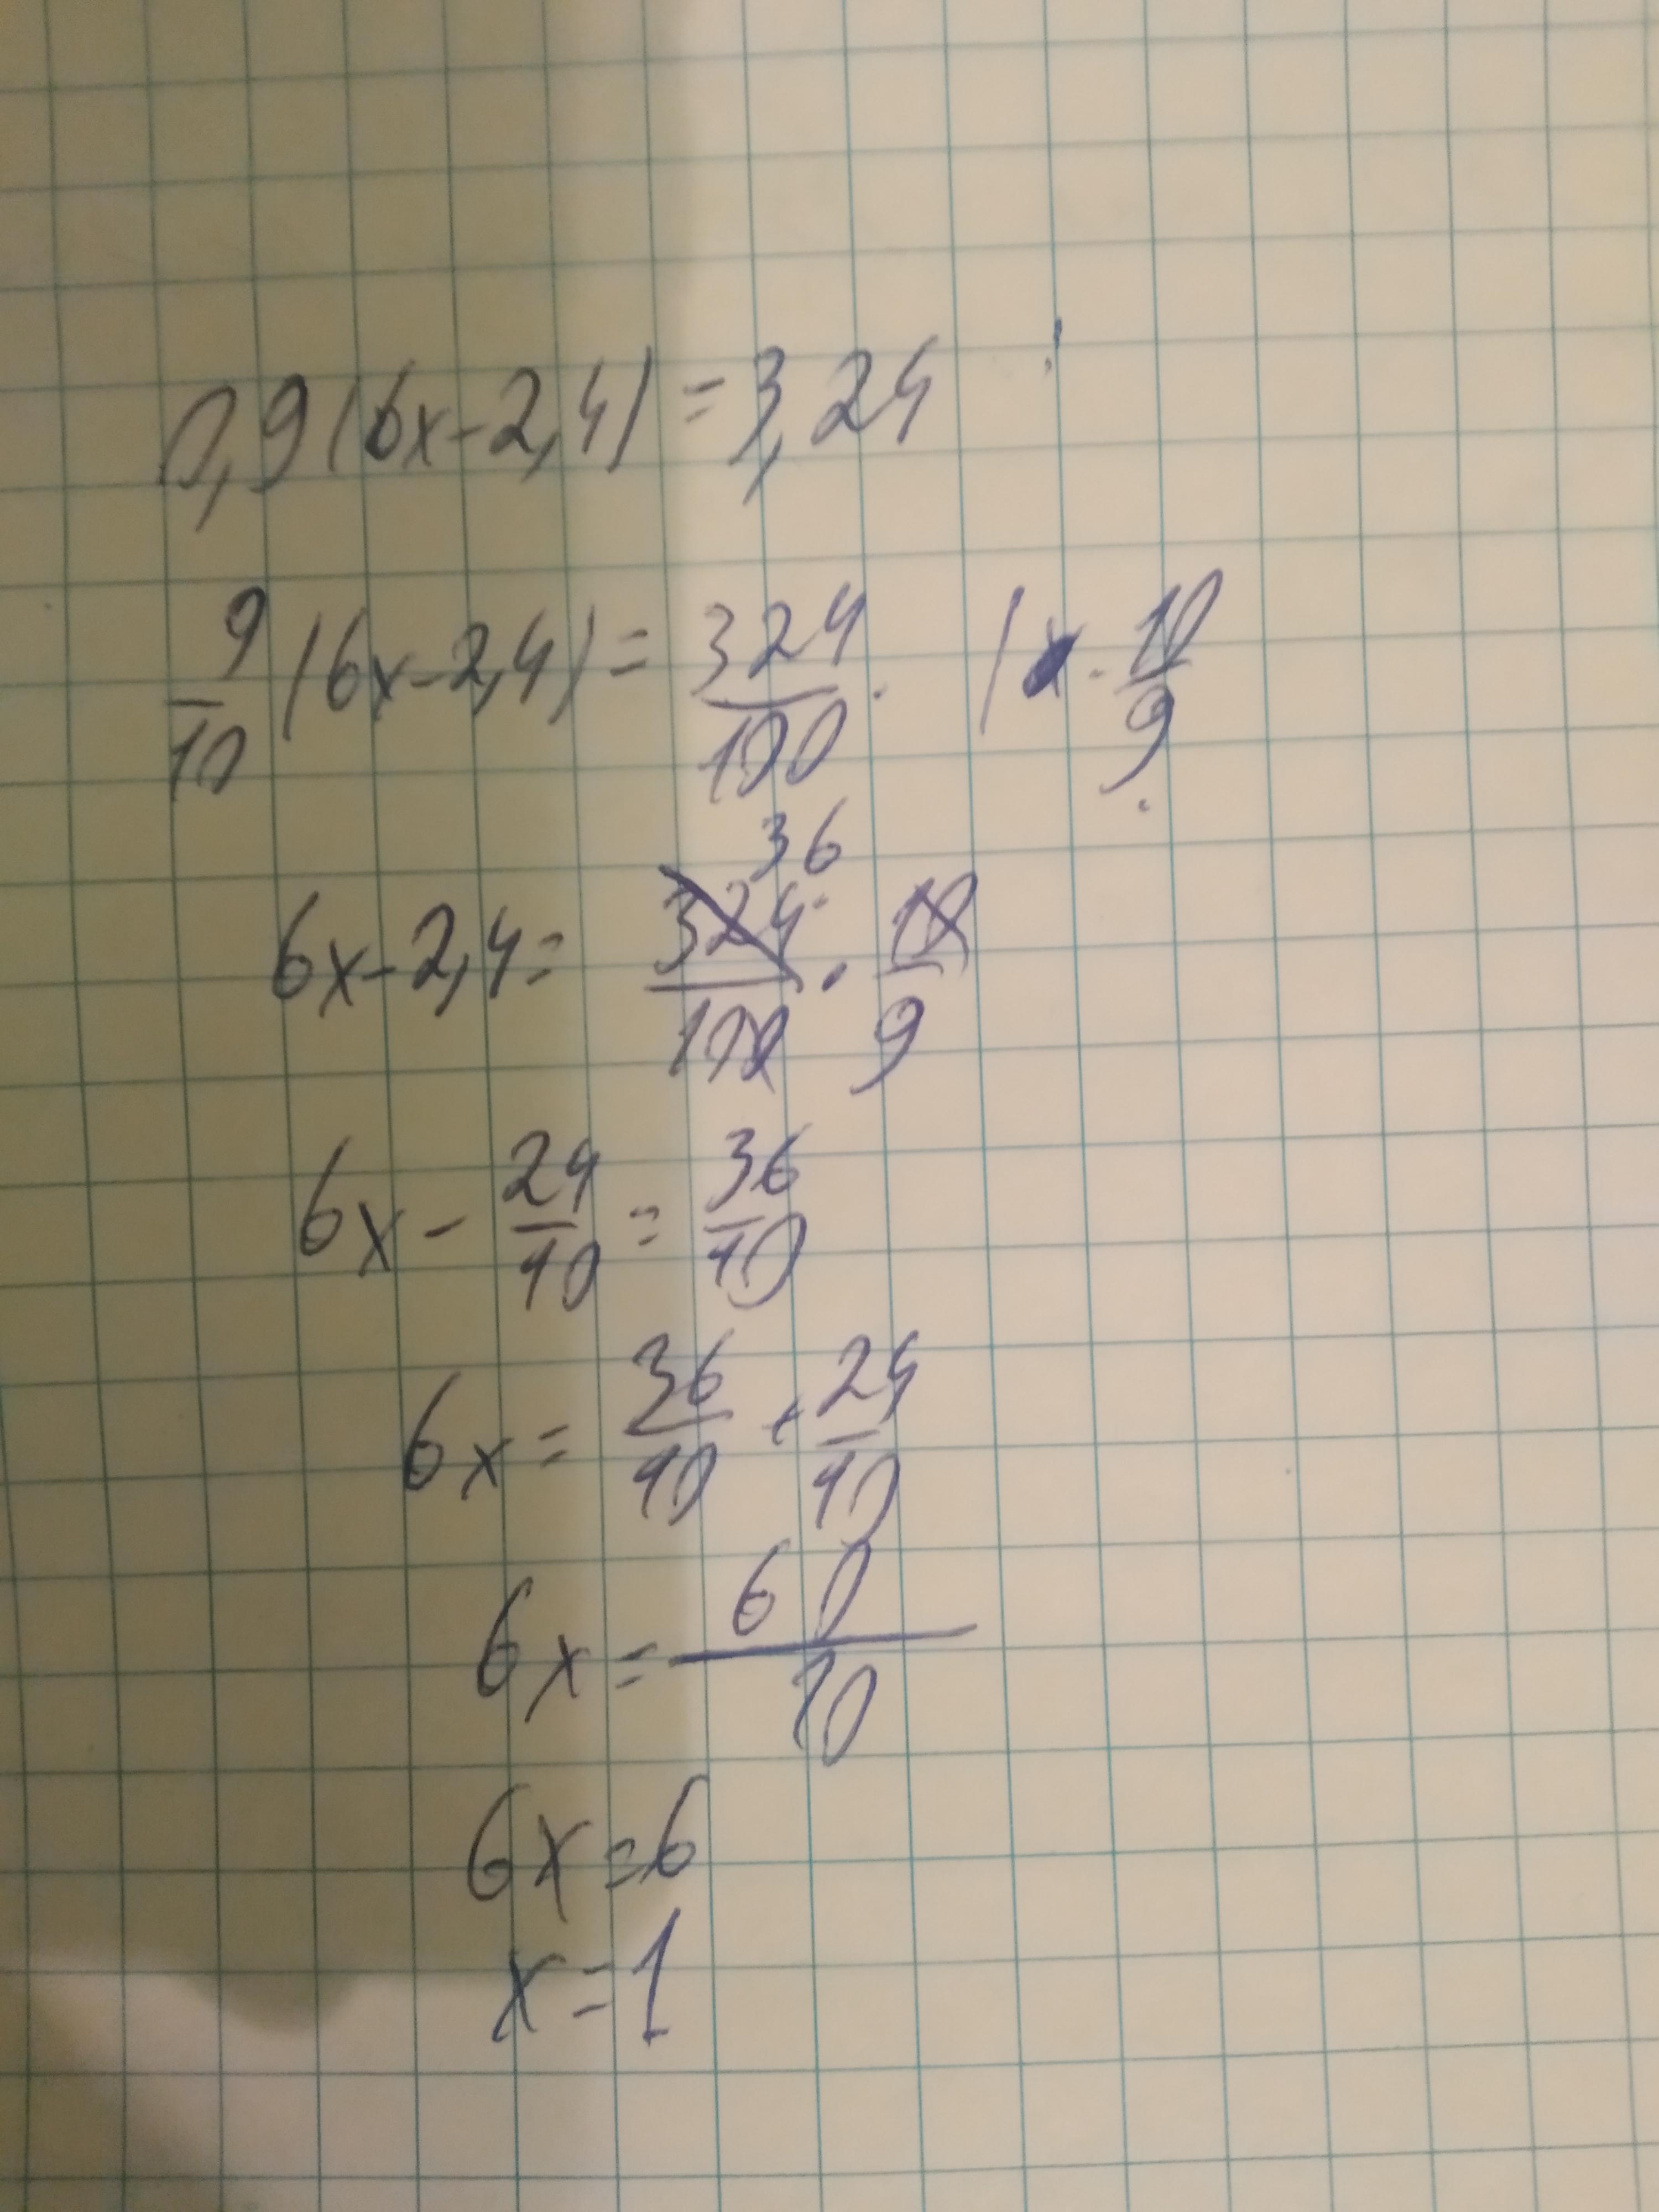 0,9(6x-2,4)=3,24
9/10 (6x-2,4)= 324/100 | · 10/9
36
6x-2,4= 324/100 · 10/9
6x - 24/10 = 36/10
6x = 36/10 + 24/10
6x = 60/10
6x=6
x=1